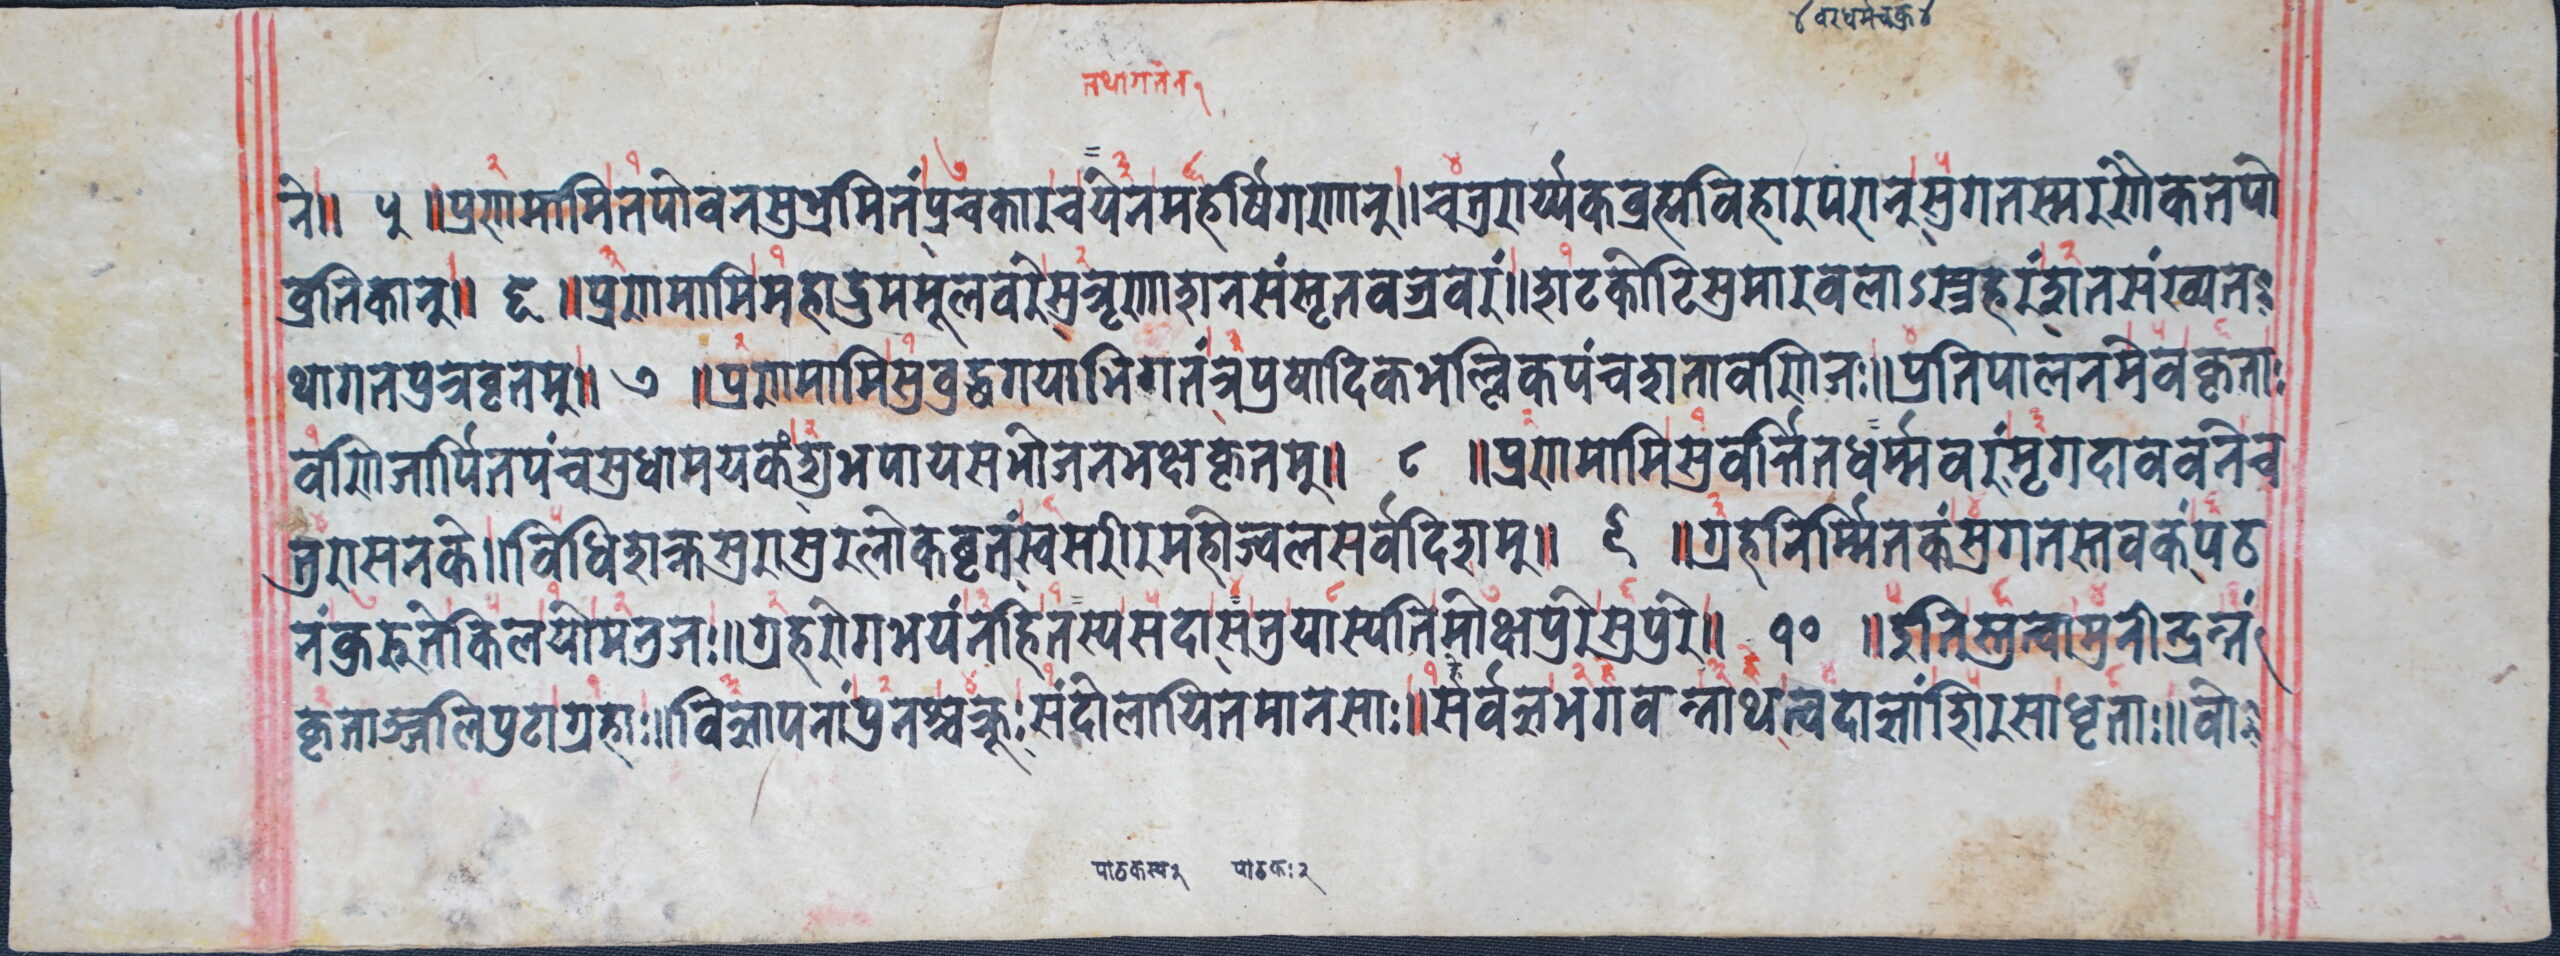 ४ वरधर्मचक्र ४
तथागतेन १
ने॥ ५ ॥प्रणमामितपोवनसुभ्रमितंप्रचकारचयेनमहर्षिगणान्॥चतुरार्य्यकब्रह्मविहारपरान्सुगतस्मरणैकतपो
व्रतिकान्॥ ६ ॥प्रणमामिमहाद्रुममूलवरेसुतृणाशनसंस्तृतवज्रवरं॥शटकोटिसुमारवलाऽस्त्रहरंज्ञानसंख्यत
थागतपुत्रवृतम्॥ ७ ॥प्रणमामिसुवुद्धगयाभिगतंत्रपुषादिकभल्लिकपंचशतावणिजः॥प्रतिपालनमेवकृताः
वणिजार्पितपंचसुधामयकंशुभपायसभोजनभक्षकृतम्॥ ८ ॥प्रणमामिसुवर्त्तितधर्म्मवरंमृगदाववनेच
तुरासनके॥विधिशक्रसुरासुरलोकवृतंस्वसरीरमहोज्वलसर्वदिशम्॥ ९ ॥ग्रहनिर्म्मितकंसुगतस्तवकंपठ
नंकुरुतेकिलयोमनुजः॥ग्रहरोगभयंनहितस्यसदासतुयास्यतिमोक्षपुरेसुपुरे॥ १० ॥इतिस्तुत्वामुनीन्द्रन्तं
कृताञ्जलिपुटाग्रहाः॥विज्ञापनांपुनश्चक्रूःसंदोलायितमानसाः॥सर्वज्ञभगवन्नाथत्वदाज्ञांशिरसाधृताः॥वो
पाठकस्य २ पाठकः २